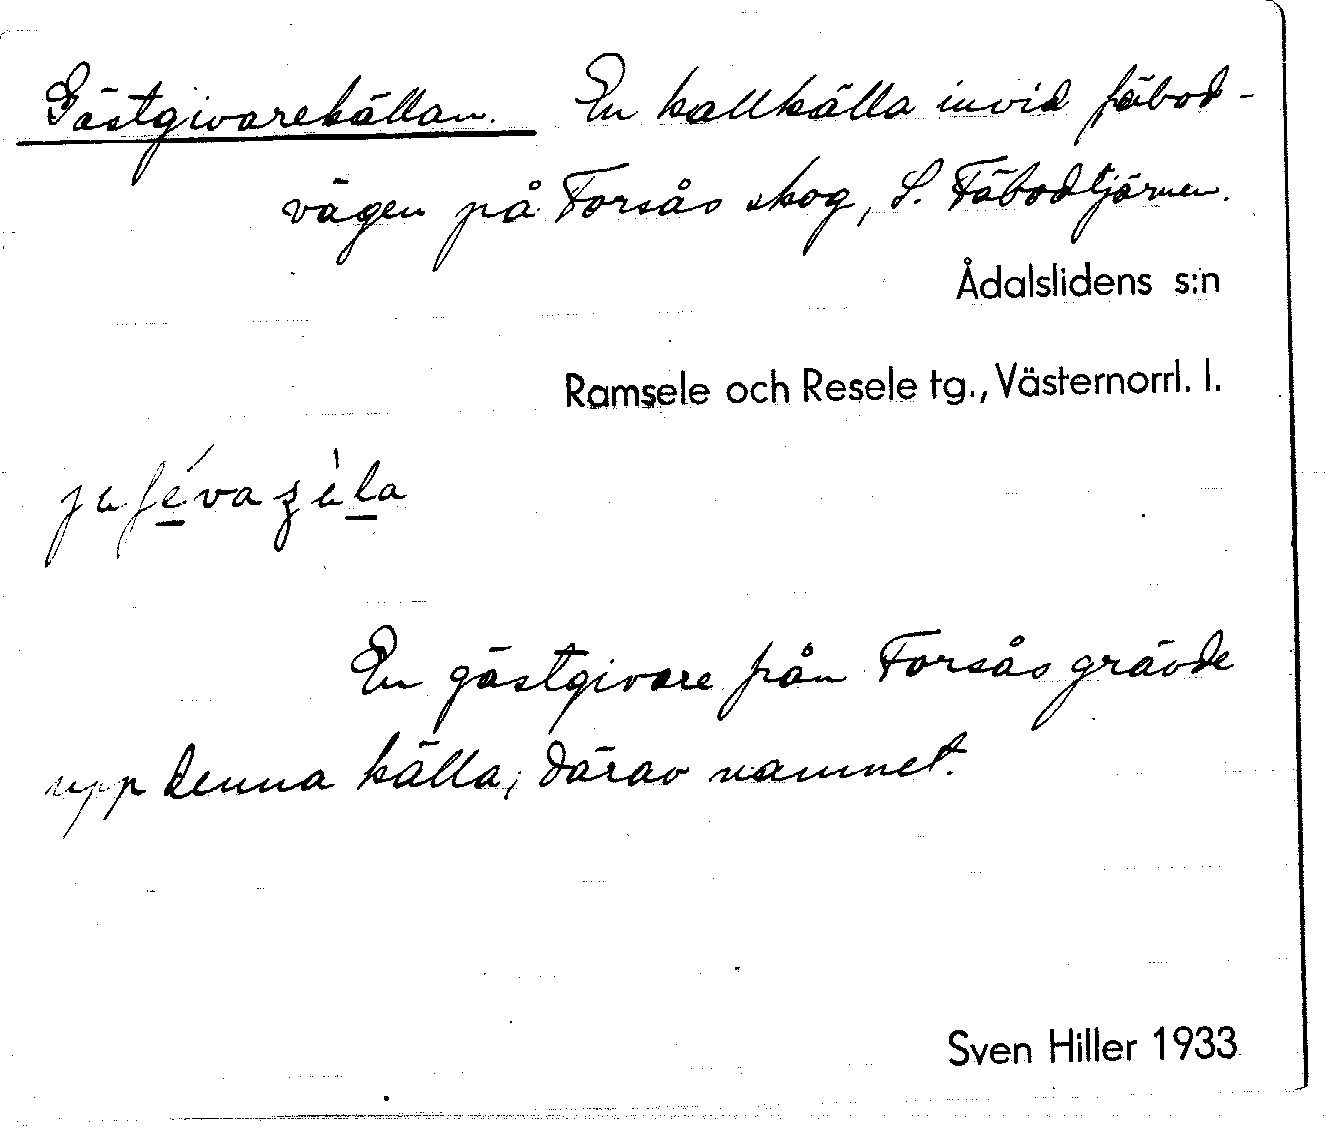 Gästgivarekällan. En kallkälla invid fäbod-
vägen på Forsås skog, S. Fäbodtjärnen.
Ådalslidens s:n
Ramsele och Resele tg., Västernorrl. l.
En gästgivare från Forsås grävde
upp denna källa, därav namnet.
Sven Hiller 1933